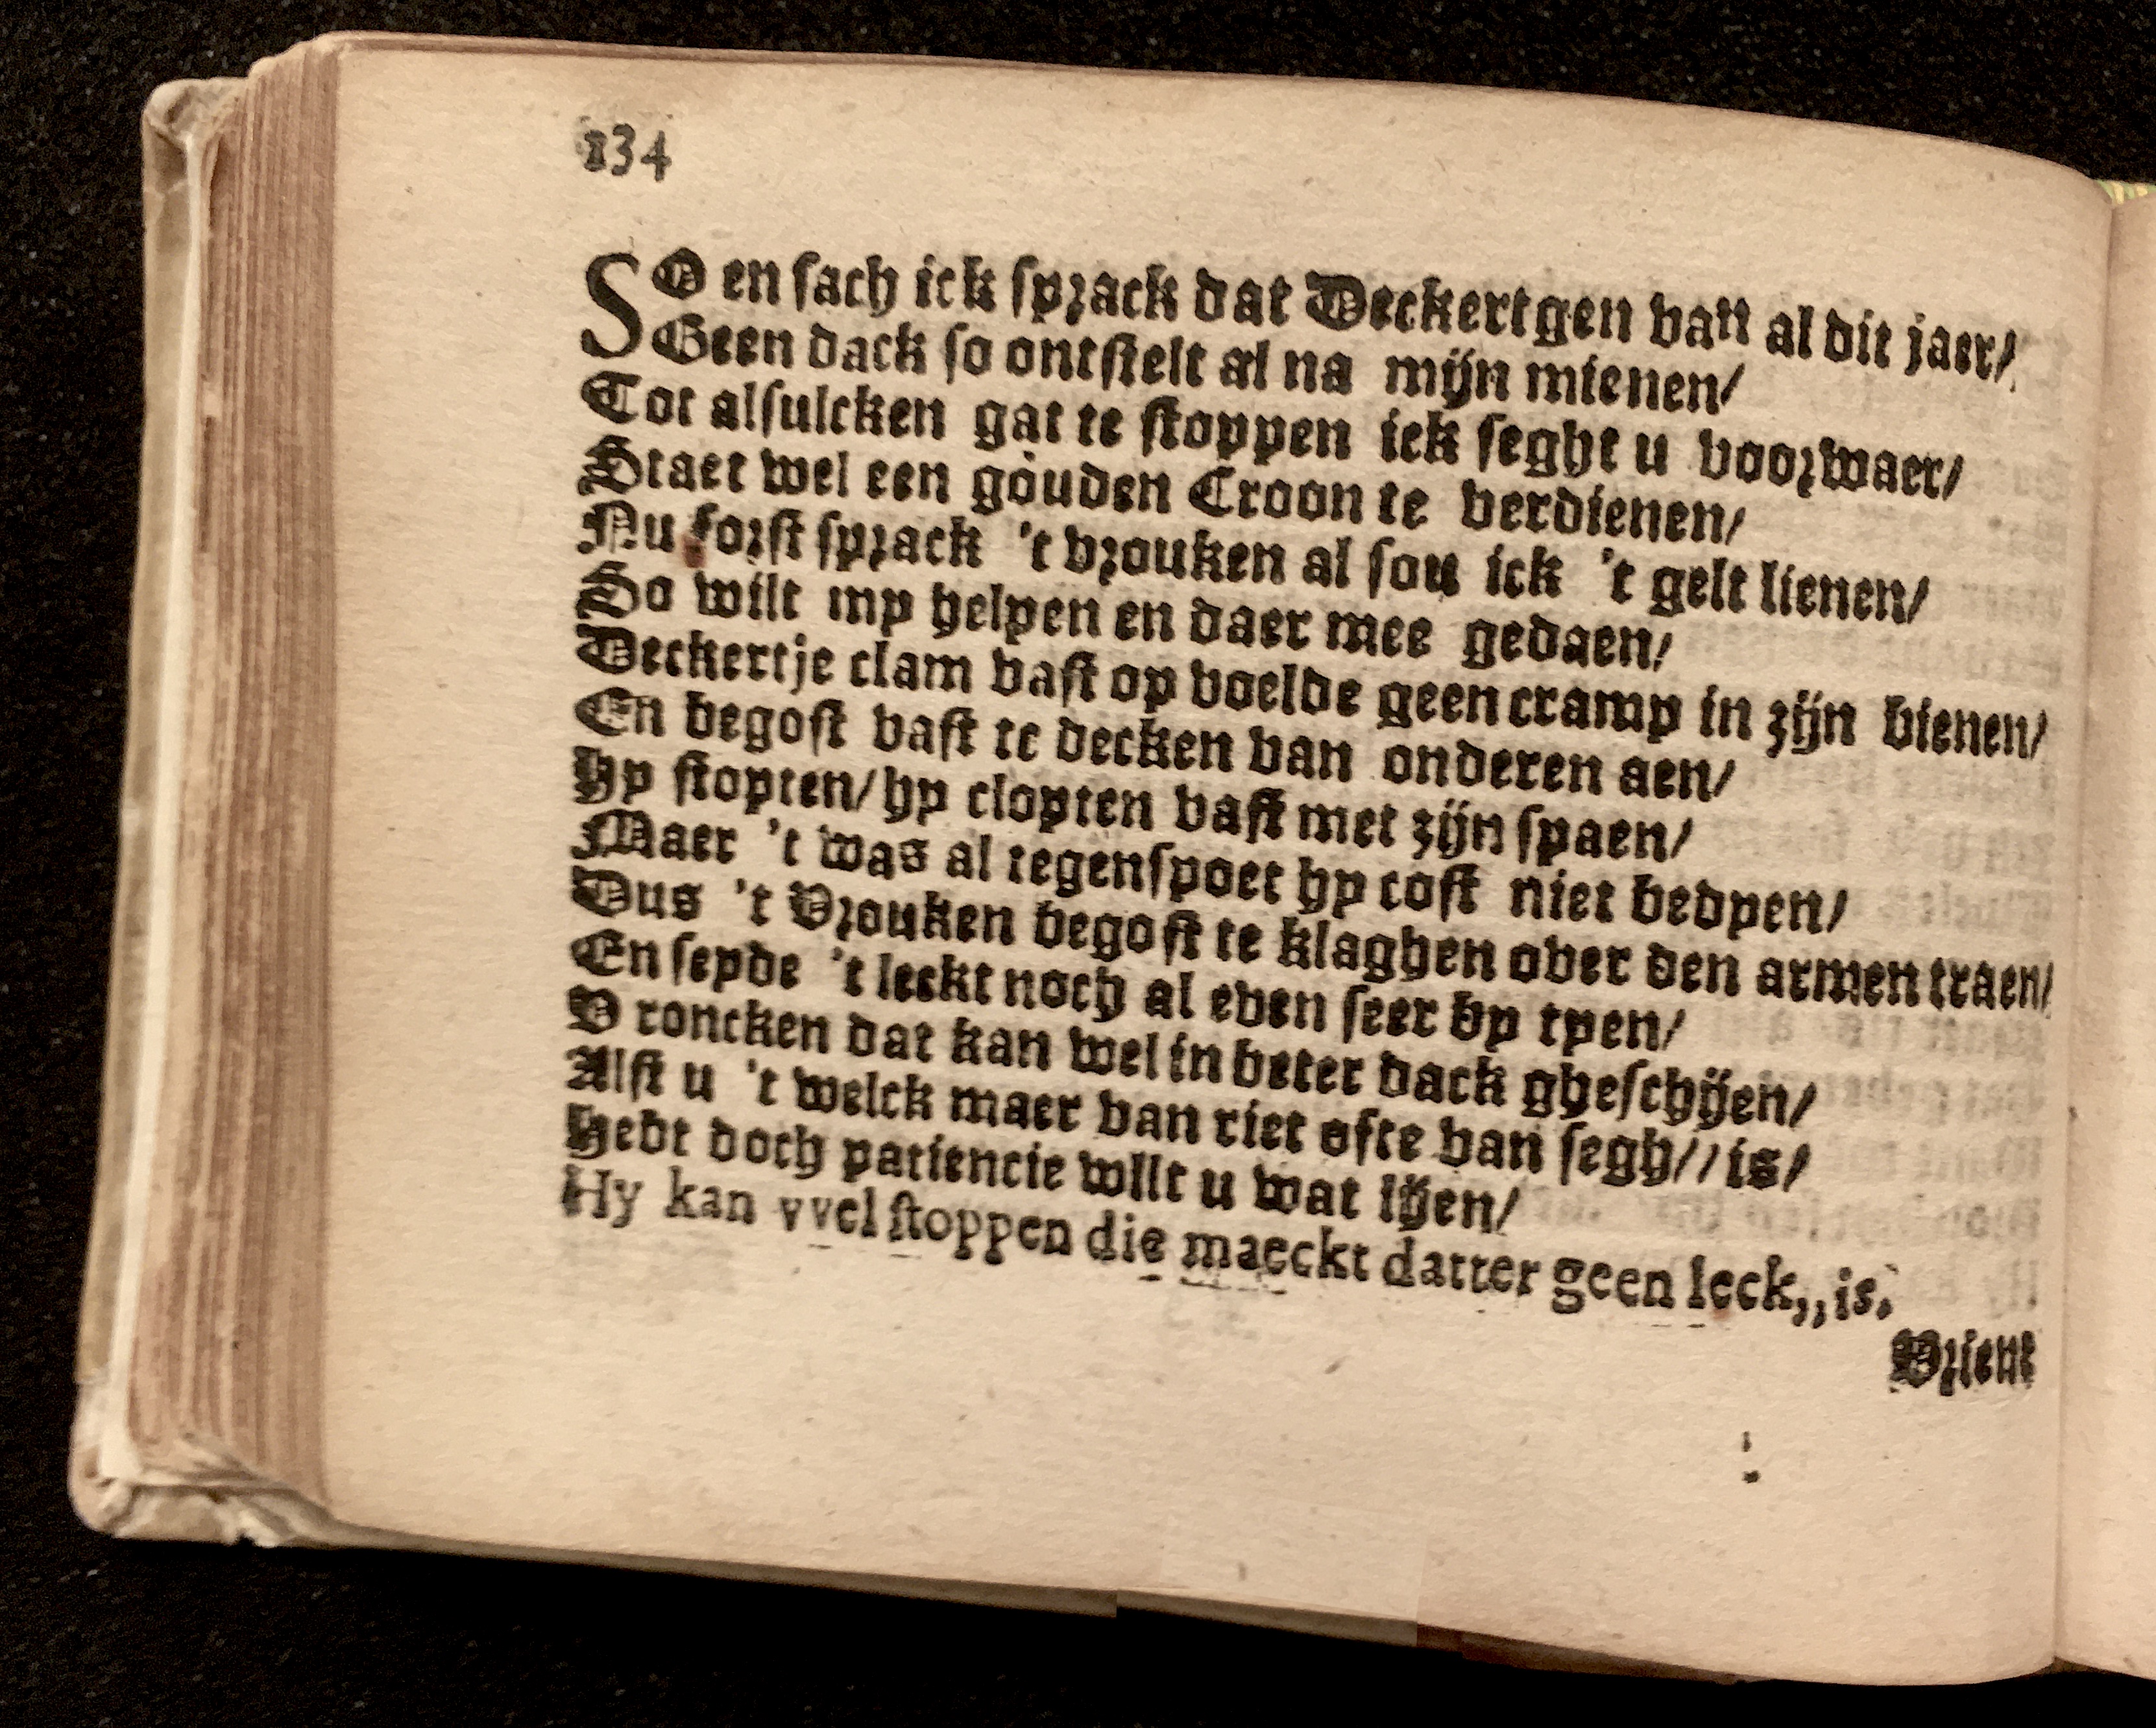 134
SO en sach ick sprack dat Deckertgen van al dit jaer/
Geen dack so ontstelt al na mijn mienen/
Tot alsulcken gat te stoppen ick seght u voorwaer/
Staet wel een gouden Croon te verdienen/
Nu forst sprack 't vrouken al sou ick 't gelt lienen/
So wilt my helpen en daer mee gedaen/
Deckertje clam vast op voelde geen cramp in zijn bienen/
En begost vast te decken van onderen aen/
Hy stopten/hy clopten vast met zijn spaen/
Maer 't was al tegenspoet hy cost niet bedyen/
Dus 't Vrouken begost te klaghen over den armen traen/
En seyde 't leckt noch al even seer by tyen/
V roncken dat kan wel in beter dack gheschijen/
Alst u 't welck maer van riet ofte van segh//is/
Hebt doch patiencie wilt u wat lijen/
Hy kan vvel stoppen die maeckt datter geen leck,,is.
Vrient